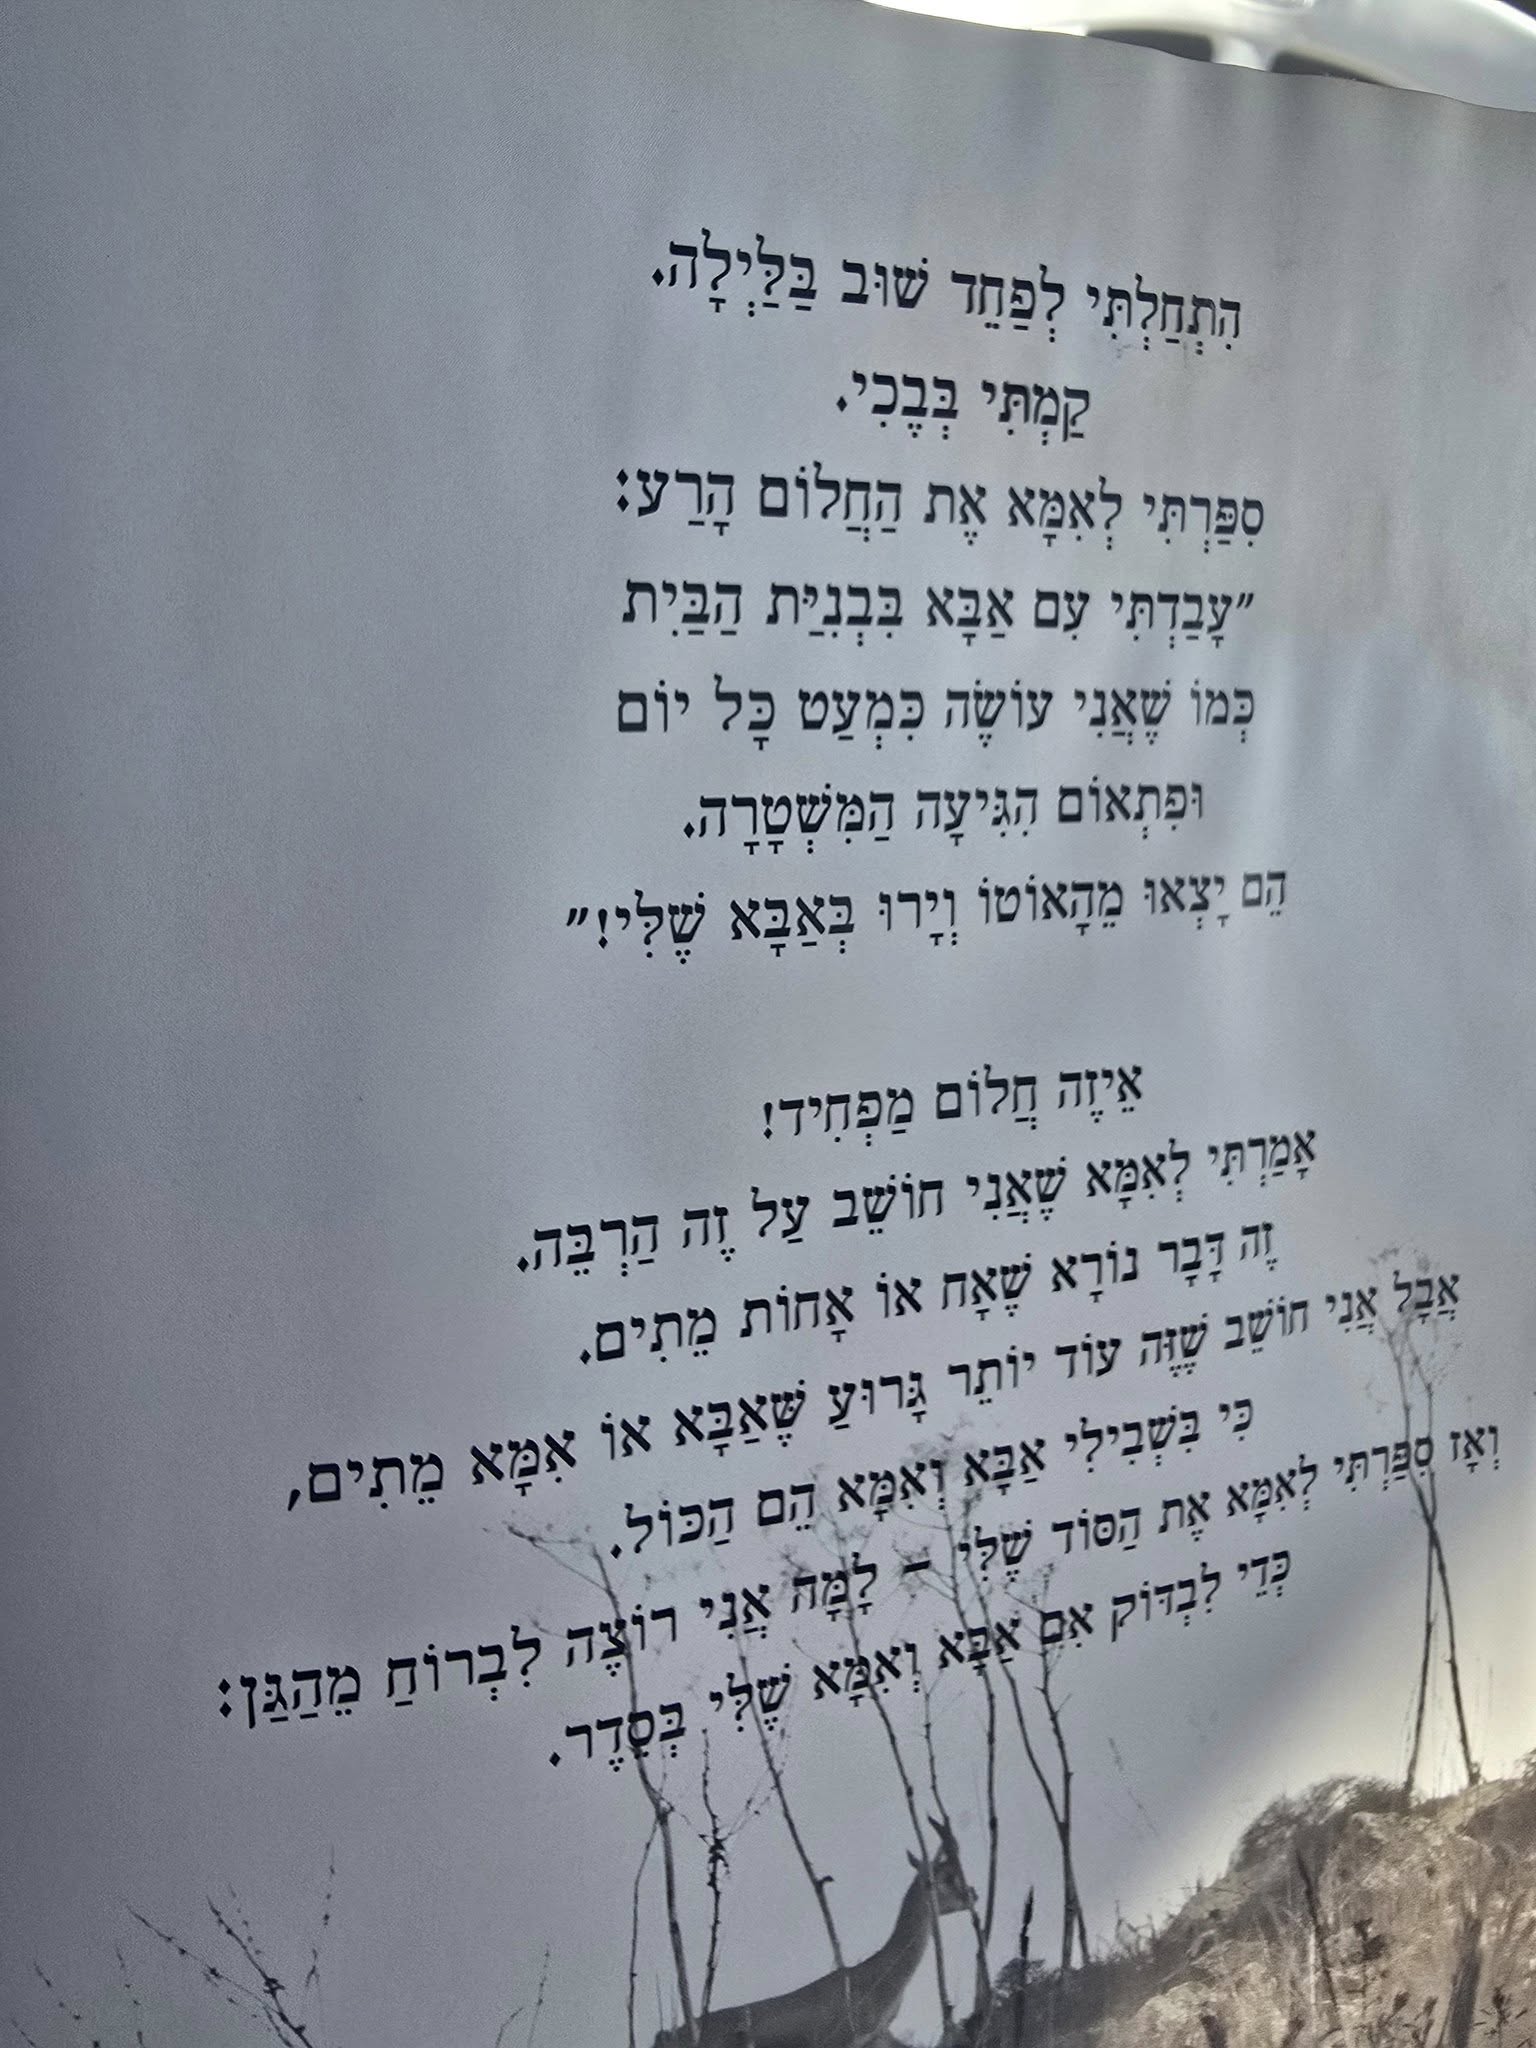 הִתְחַלְתִּי לְפַחֵד שׁוּב בַּלַּיְלָה.
קַמְתִּי בְּבֶכִי.
סִפַּרְתִּי לְאִמָּא אֶת הַחֲלוֹם הָרַע:
"עָבַדְתִּי עִם אַבָּא בִּבְנִיַּת הַבַּיִת
כְּמוֹ שֶׁאֲנִי עוֹשֶׂה כִּמְעַט כָּל יוֹם
וּפִתְאוֹם הִגִּיעָה הַמִּשְׁטָרָה.
הֵם יָצְאוּ מֵהָאוֹטוֹ וְיָרוּ בְּאַבָּא שֶׁלִּי!"
אֵיזֶה חֲלוֹם מַפְחִיד!
אָמַרְתִּי לְאִמָּא שֶׁאֲנִי חוֹשֵׁב עַל זֶה הַרְבֵּה.
זֶה דָּבָר נוֹרָא שֶׁאָח אוֹ אָחוֹת מֵתִים.
אֲבָל אֲנִי חוֹשֵׁב שֶׁזֶּה עוֹד יוֹתֵר גָּרוּעַ שֶׁאַבָּא אוֹ אִמָּא מֵתִים,
כִּי בִּשְׁבִילִי אַבָּא וְאִמָּא הֵם הַכּוֹל.
וְאָז סִפַּרְתִּי לְאִמָּא אֶת הַסּוֹד שֶׁלִּי – לָמָּה אֲנִי רוֹצֶה לִבְרוֹחַ מֵהַגַּן:
כְּדֵי לִבְדּוֹק אִם אַבָּא וְאִמָּא שֶׁלִּי בְּסֵדֶר.